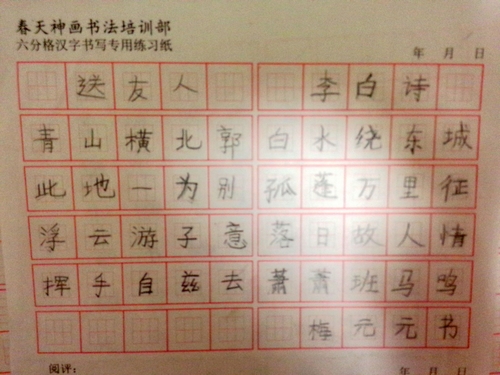 春天神画书法培训部
六分格汉字书写专用练习纸
年 月 日
送友人 李白诗
青山横北郭 白水绕东城
此地一为别 孤蓬万里征
浮云游子意 落日故人情
挥手自兹去 萧萧班马鸣
梅元元书
阅评： 年 月 日